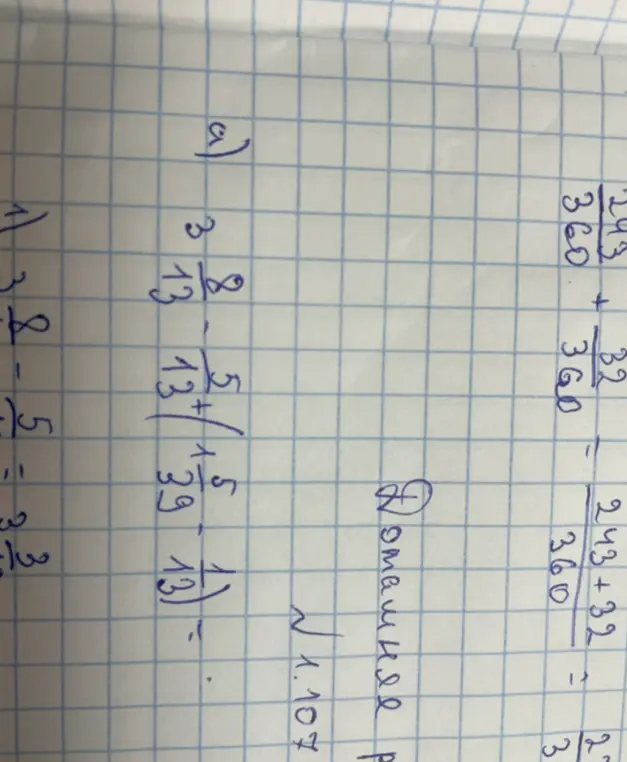 243/360 + 32/360 = 243+32/360 =
Домашняя
№ 1.107
а) 3 8/13 - 5/13 + (1 5/39 - 1/13) =
1) 3 8/ - 5/ = 3 3/